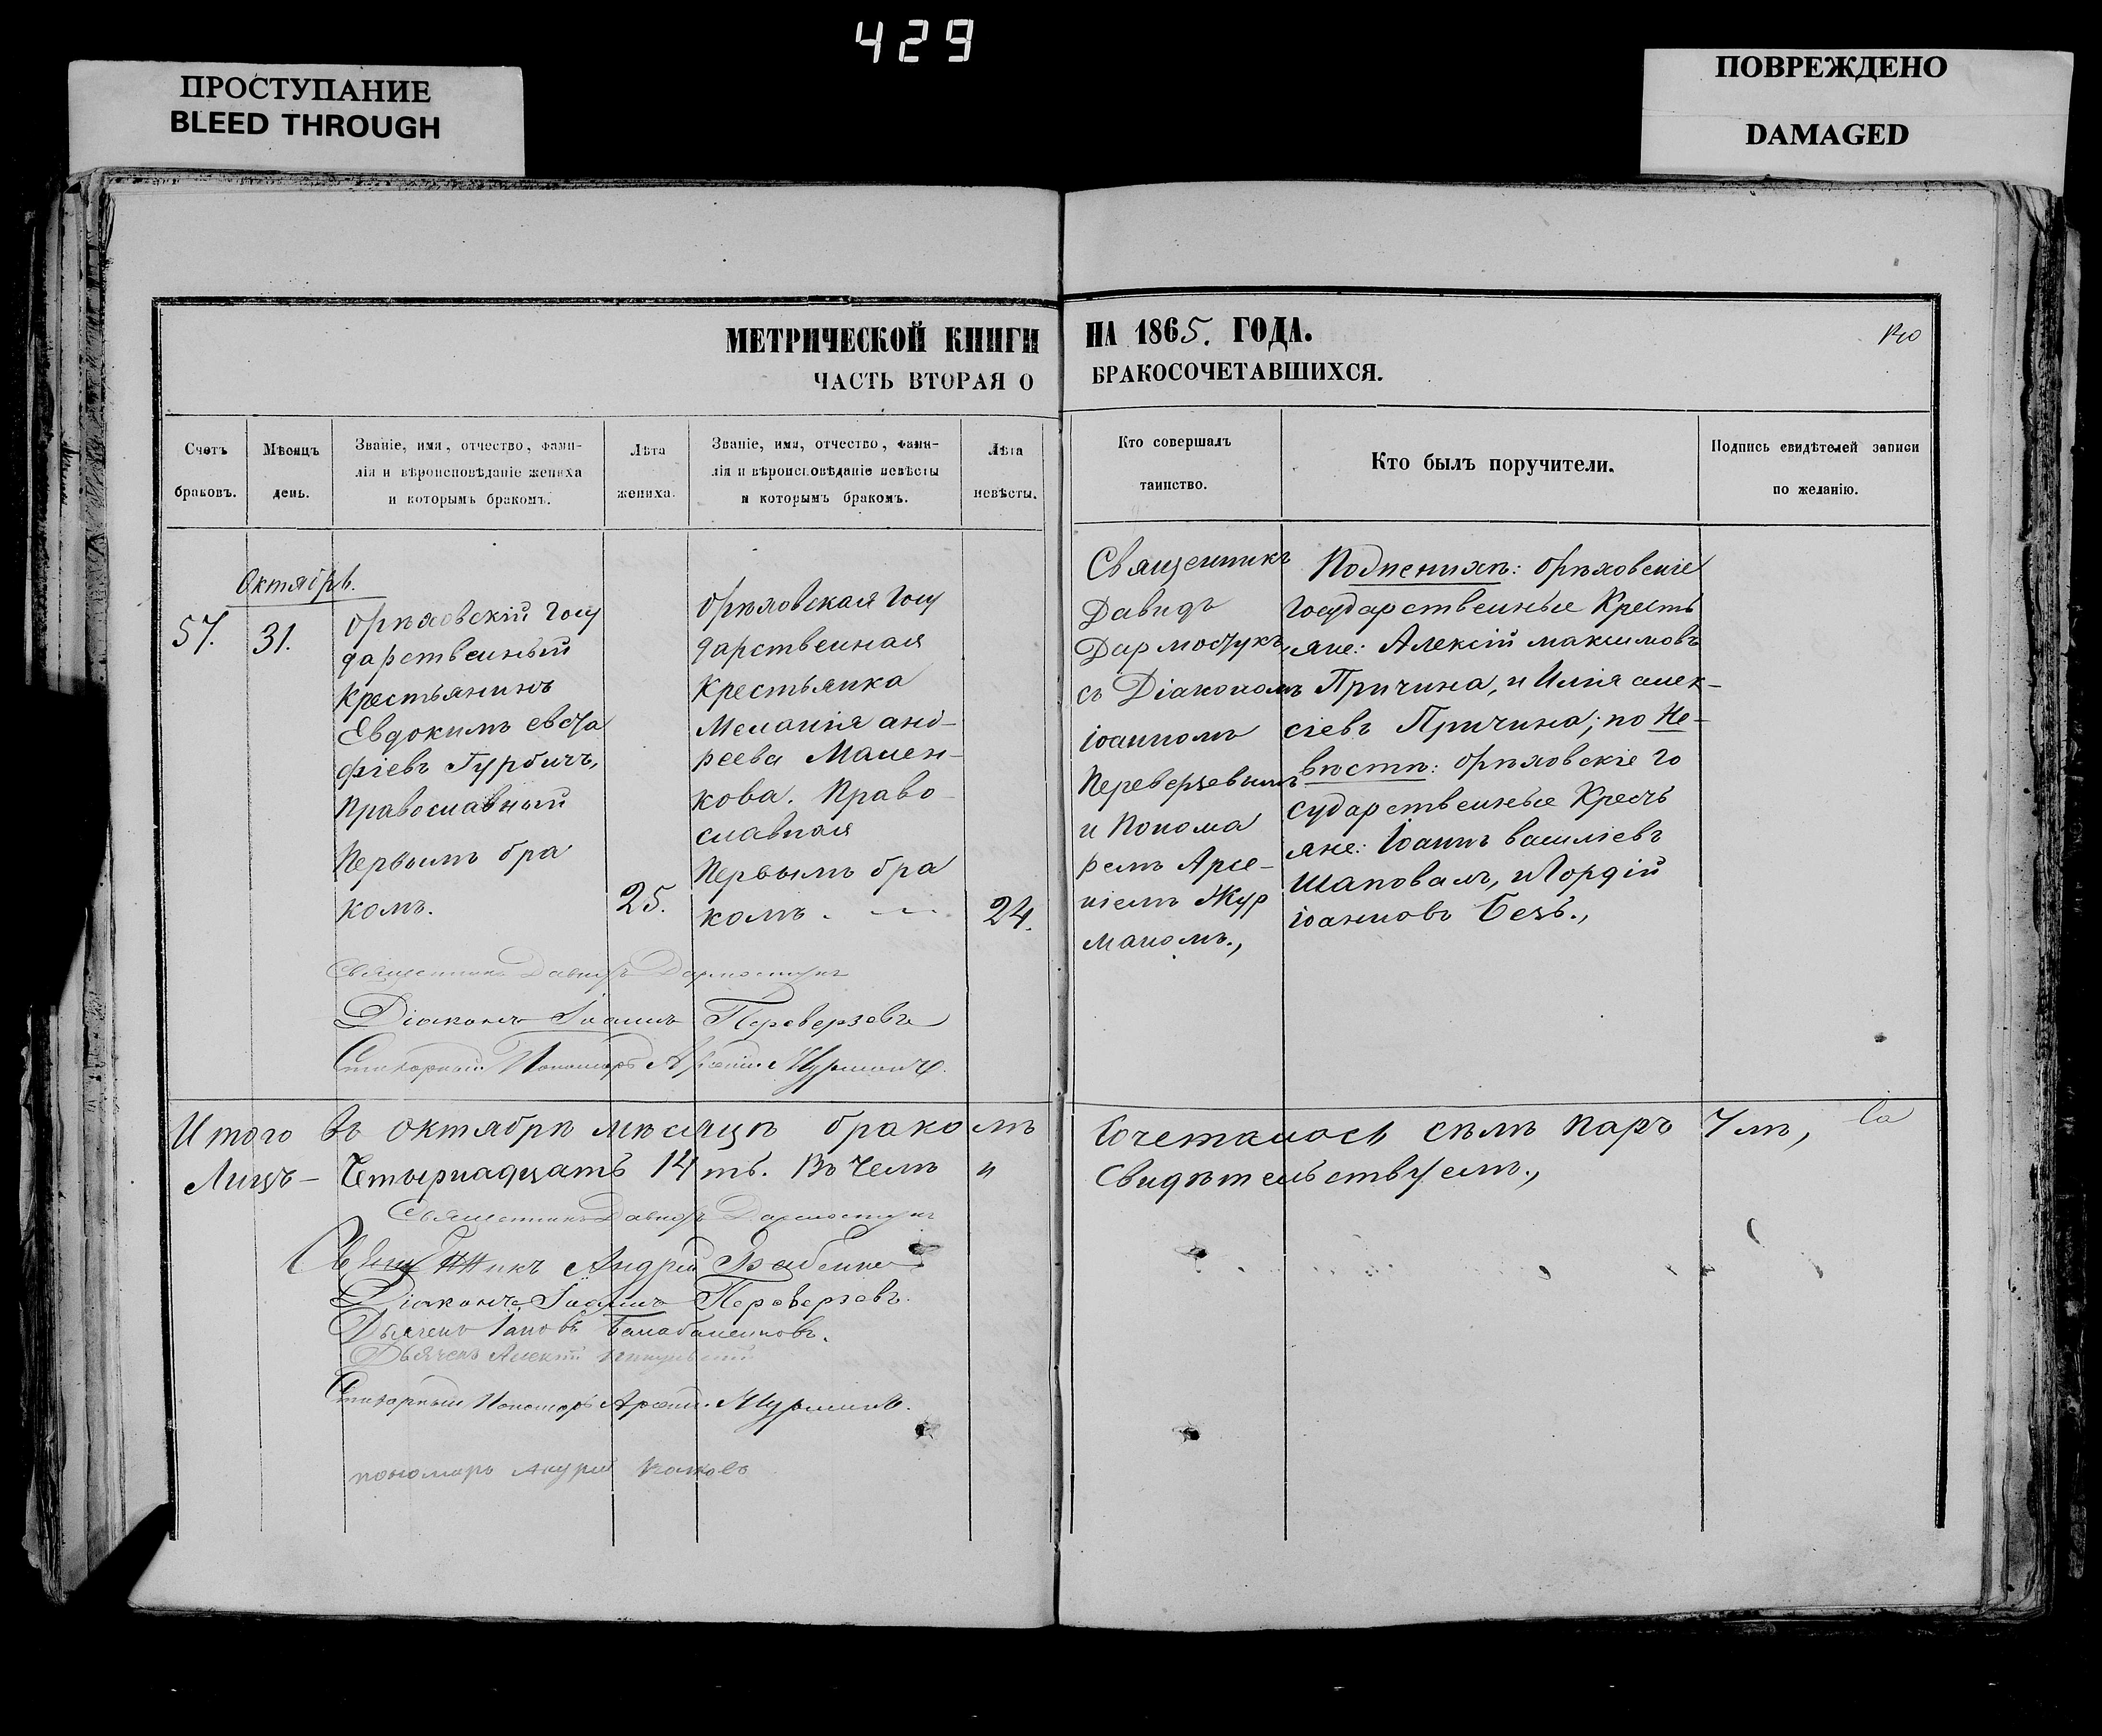 429
ПРОСТУПАНИЕ
BLEED THROUGH
ПОВРЕЖДЕНО
DAMAGED
МЕТРИЧЕСКОЙ КНИГИ
ЧАСТЬ ВТОРАЯ О
НА 1865. ГОДА.
БРАКОСОЧЕТАВШИХСЯ.
Счетъ
браковъ.
Мѣсяцъ
день.
Званіе, имя, отчество, фами-
лія и вѣроисповѣданіе жениха
и которымъ бракомъ.
Лѣта
жениха.
Званіе, имя, отчество, фами-
лія и вѣроисповѣданіе невѣсты
и которымъ бракомъ.
Лѣта
невѣсты.
Кто совершалъ
таинство.
Кто былъ поручители.
Подпись свидѣтелей записи
по желанію.
Октябрь.
57.
31.
Орѣховскій Госу
дарственный
Крестьянинъ
Евдокимъ Евста
фіевъ Гурбичъ,
Православный
Первымъ бра
комъ.
25.
Орѣховская Госу
дарственная
Крестьянка
Меланія анд-
реева Мален-
кова. Право-
славная
Первымъ бра
комъ.
24.
Священникъ
Давидъ
Дармостукъ,
съ Діакономъ
Іоанномъ
Переверзевымъ
и Понома
ремъ Арсе-
ніемъ Жур
маномъ.,
По женихѣ: Орѣховскіе
Государственные Кресть
яне: Алексій максимовъ
Причина, и Илія алек-
сіевъ Причина; по Не-
вѣстѣ: Орѣховскіе Го
сударственные Кресть
яне: Іоаннъ василіевъ
Шаповалъ, и Гордій
іоанновъ Безъ.,
Священникъ Давидъ Дармостукъ
Діаконъ Іоаннъ Переверзевъ
Стихарный Пономарь Арсеній Журманъ.
Итого въ октябрѣ мѣсяцѣ бракомъ
Сочеталось семь паръ 7мь,
Лицъ – Четырнадцать 14ть. Въ чемъ и
Свидѣтельствуемъ.,
Священникъ Давидъ Дармостукъ
Священникъ Андрей Бабенко
Діаконъ Іоаннъ Переверзевъ.
Дьячекъ Іаковъ Балабаненковъ.
Дьячекъ Алексій
Стихарный Пономарь Арсеній Журманъ.
пономарь Андрей